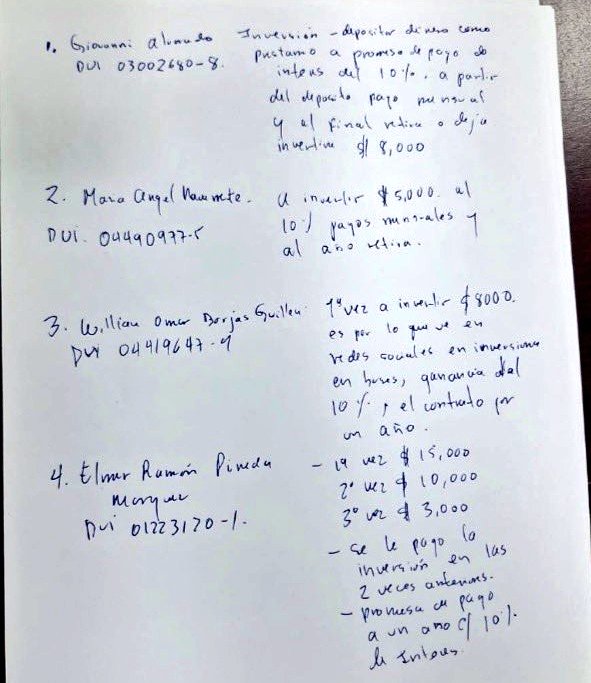 1. Giovanni Alvarado
DUI 03002680-8.
Inversión - depositar dinero como
prestamo a promesa de pago de
interes del 10%. a partir
del deposito pago mensual
y al final retira o deja
invertir $ 8,000
2. Angel Navarrete.
DUI. 04490977-5
a invertir $5,000. al
10% pagos mensuales y
al año retira.
3. Willian Omar Borjas Guillen.
DUI 04419647-9
1ª vez a invertir $8000.
es por lo que ve en
redes sociales en inversiones
en buses, ganancia del
10%, el contrato por
un año.
4. Elmer Ramón Pineda
Marquez
DUI 01223170-1.
- 1ª vez $ 15,000
2ª vez $ 10,000
3ª vez $ 3,000
- se le pago la
inversión en las
2 veces anteriores.
- promesa de pago
a un año c/ 10%.
de Interes.